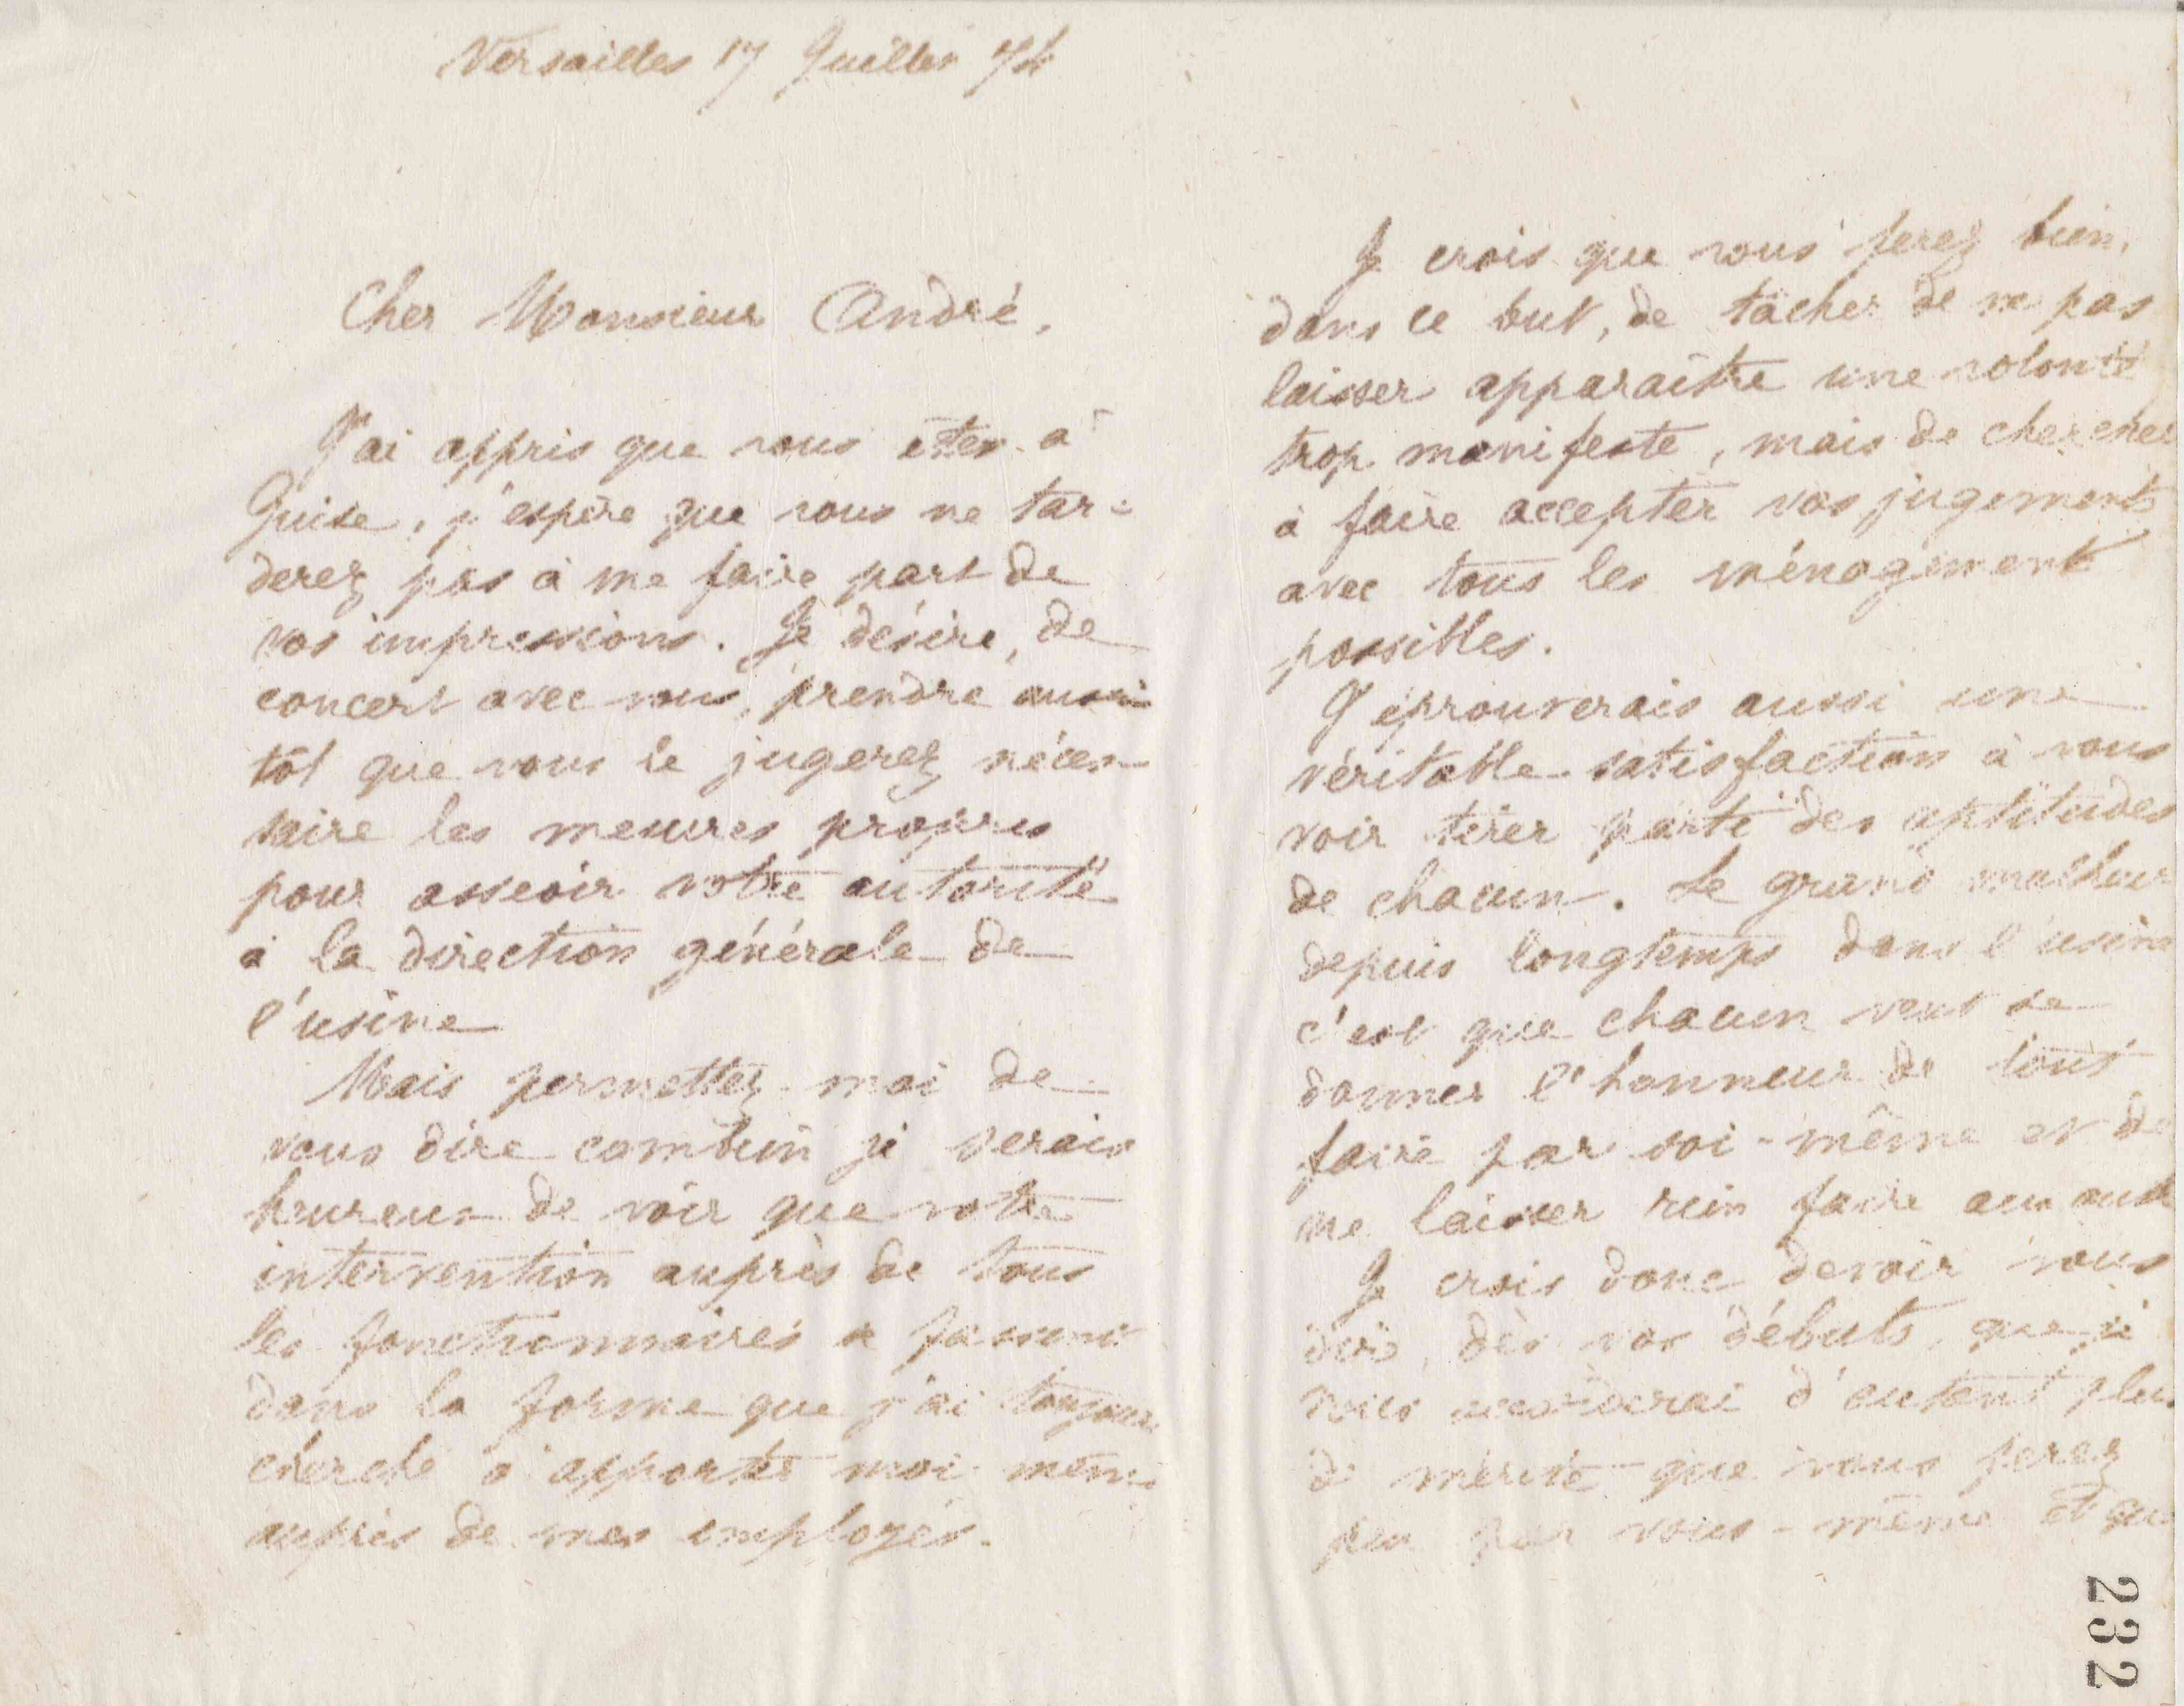 Versailles 17 Juillet 74
Cher Monsieur André,
J'ai appris que vous êtes à
Guise, j'espère que vous ne tar-
derez pas à me faire part de
vos impressions. Je désire, de
concert avec vous, prendre aussi
tôt que vous le jugerez néces-
saire les mesures propres
pour asseoir votre autorité
à la direction générale de
l'usine
Mais permettez-moi de
vous dire combien je serais
heureux de voir que votre
intervention auprès de tous
les fonctionnaires se fasse
dans la forme que j'ai toujours
cherché à apporter moi-même
auprès de mes employés.
Je crois que vous ferez bien,
dans ce but, de tâcher de ne pas
laisser apparaître une volonté
trop manifeste, mais de chercher
à faire accepter vos jugements
avec tous les ménagements
possibles.
J'éprouverais aussi une
véritable satisfaction à vous
voir tirer parti des aptitudes
de chacun. Le grand malheur
depuis longtemps dans l'usine
c'est que chacun veut se
donner l'honneur de tout
faire par soi-même et de
ne laisser rien faire aux autres
Je crois donc devoir vous
dire, dès vos débuts, que je
vous accorderai d'autant plus
de mérite que vous ferez
peu par vous-même et que
232